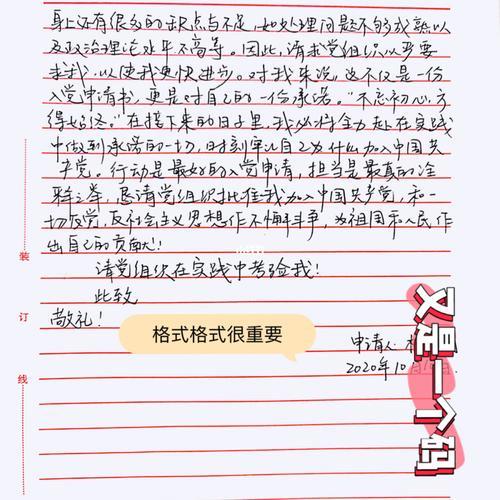 身上还有很多的缺点与不足,如处理问题不够成熟以
及政治理论水平不高等。因此,请求党组织以严要
求我,以使我更快进步。对我来说,这不仅是一份
入党申请书,更是对自己的一份承诺。"不忘初心,方
得始终。"在接下来的日子里,我必将全力赴在实践
中做到承诺的一切,时刻牢记自己为什么加入中国共
产党。行动是最好的入党申请,担当是最真的
之举,恳请党组织批准我加入中国共产党,和一
切反党,反社会主义思想作不懈斗争,为祖国和人民作
出自己的贡献!
请党组织在实践中考验我!
此致
敬礼!
装
订
线
格式格式很重要
申请人:
2020年10月
又是一个码